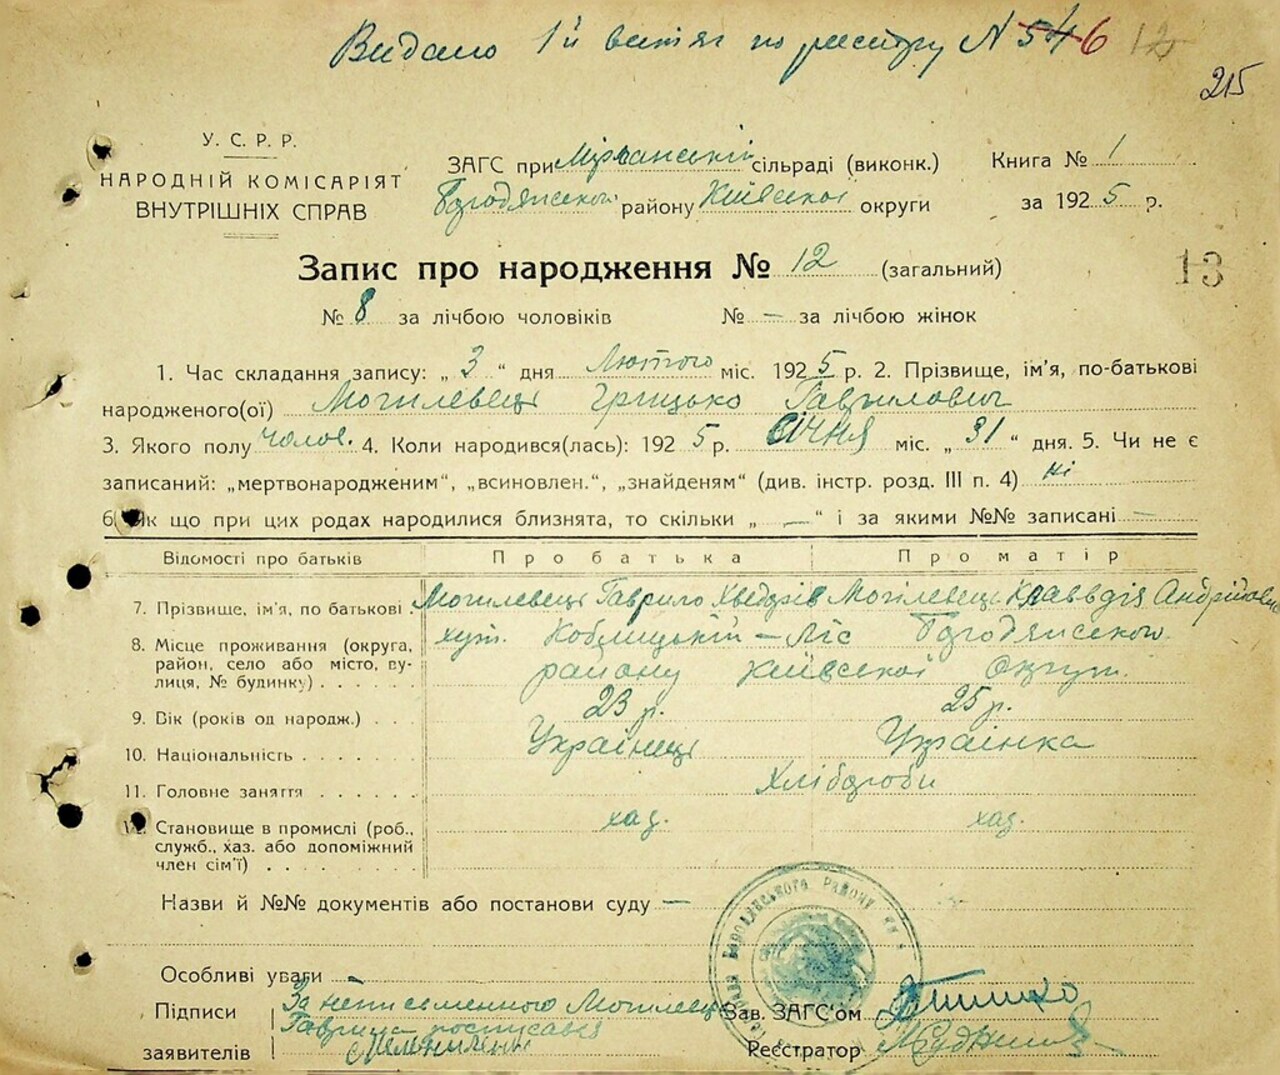 Видано 1й витяг по реєстру N 54 6 12
215
У. С. Р. Р.
НАРОДНІЙ КОМІСАРІЯТ
ВНУТРІШНІХ СПРАВ
ЗАГС при Мірчанській сільраді (виконк.)
Бородянського району Київської округи
Книга № 1
за 1925 р.
Запис про народження № 12 (загальний)
13
№ 8 за лічбою чоловіків № — за лічбою жінок
1. Час складання запису: „ 3 “ дня Лютого міс. 1925 р. 2. Прізвище, ім'я, по-батькові
народженого(ої) Могилевець Грицько Гаврилович
3. Якого полу чолов. 4. Коли народився(лась): 1925 р. СІЧНЯ міс. „ 31 “ дня. 5. Чи не є
записаний: „мертвонародженим“, „всиновлен.“, „знайденям“ (див. інстр. розд. III п. 4) ні
6. Як що при цих родах народилися близнята, то скільки „ — “ і за якими №№ записані —
Відомості про батьків Про батька Про матір
7. Прізвище, ім'я, по батькові Могилевець Гаврило Хведорів Могілевець Клавдія Андріївна
8. Місце проживання (округа, хут. Коблицький — Ліс Бородянського
район, село або місто, ву- району Київської Округи.
лиця, № будинку)
9. Вік (років од народж.) 23 р. 25 р.
10. Національність Українець Українка
11. Головне заняття Хлібороби
12. Становище в промислі (роб., хаз. хаз.
служб., хаз. або допоміжний
член сім'ї)
Назви й №№ документів або постанови суду —
Бородянського Району
Особливі уваги —
Підписи За неписьменного Могилевця
Гаврила росписався
заявителів
Зав. ЗАГС'ом
Реєстратор